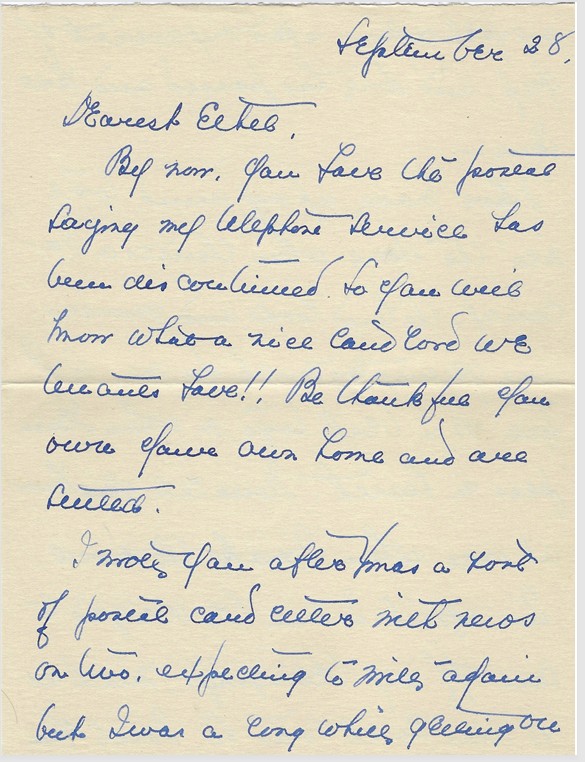 September 28,
Dearest Ethel,
By now, you have the postal
saying my telephone service has
been discontinued. So you will
know what a nice landlord we
tenants have!! Be thankful you
own your own home and are
settled.
I wrote you after Xmas a sort
of postal card letter with news
on two, expecting to write again
but I was a long while getting on